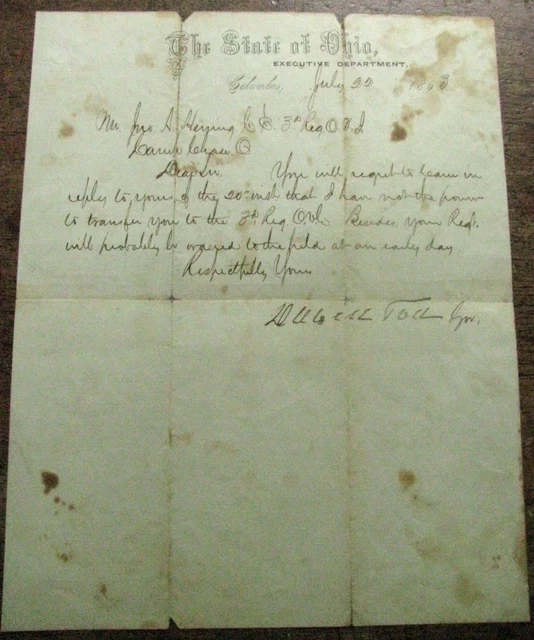 The State of Ohio,
EXECUTIVE DEPARTMENT,
Columbus, July 22 1863
Mr Jno S. 3d Reg O.V.I
Camp Chase O
Dear Sir. You will regret to learn in
reply to yours of the 20 inst that I have not the power
to transfer you to the 3d Reg OVC. Besides, your Regt.
will probably be ordered to the field at an early day
Respectfully Yours
David Tod Gov.